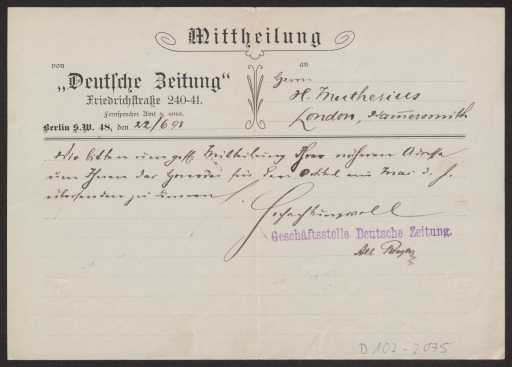 Mittheilung
von
an
„Deutsche Zeitung“
Friedrichstraße 240-41.
Fernsprecher Amt
Berlin S.W. 48, den 22/6 98
Herrn
H. Muthesius
London, Hammersmith
Wir bitten um gefl. Mitteilung Ihrer näheren Adresse
um Ihnen das Honorar für den Artikel im Mai d. J.
übersenden zu können.
Hochachtungsvoll
Geschäftsstelle Deutsche Zeitung.
D102-2075